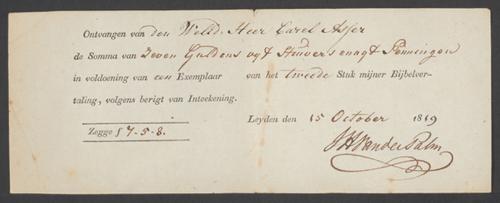 Ontvangen van den WelEd. Heer Carel Asser
de Somma van Zeven Guldens vyf Stuivers en agt Penningen
in voldoening van een Exemplaar van het tweede Stuk mijner Bijbelver-
taling, volgens berigt van Inteekening.
Leyden den 15 October 1819
Zegge f 7-5-8.
JHvanderPalm